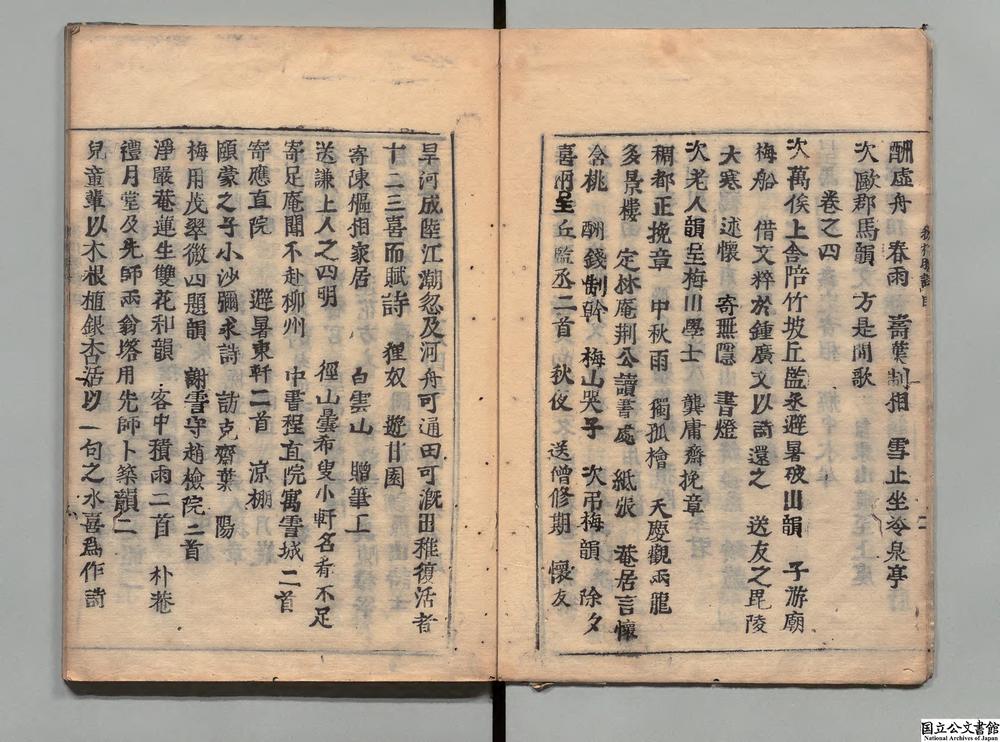 酬虛舟　春雨　壽葉制相　雪止坐冷泉亭
次歐郡馬韻　方是閒歌
卷之四
次萬俟上舍陪竹坡丘監丞避暑破山韻　子游廟
梅船　借文粹於鍾廣文以詩還之　送友之毘陵
大寒　述懷　寄無隱　書燈
次老人韻呈梅川學士　龔庸齋挽章
稠都正挽章　中秋雨　獨孤檜　天慶觀兩龍
多景樓　定林庵荆公讀書處　紙張　菴居言懷
含桃　酬錢制幹　梅山哭子　次吊梅韻　除夕
喜雨呈丘監丞二首　秋夜　送僧修期　懷友
旱河成陸江潮忽及河舟可通田可漑田稚復活者
十二三喜而賦詩　狸奴　遊甘園
寄陳傴相家居　白雲山　贈筆工
送謙上人之四明　徑山曇布叟小軒名看不足
寄足庵聞不赴柳州　中書程直院寓雪城二首
寄應直院　避暑東軒二首　涼棚
頤蒙之子小沙彌求詩　訪克齋葉　陽
梅用茂翠微四題韻　謝雪守趙檢院二首
淨嚴菴蓮生雙花和韻　客中積雨二首　朴菴
禮月堂及先師兩翁塔用先師卜築韻二
兒童輩以木根植銀杏活以一句之水喜爲作詩
国立公文書館
National Archives of Japan